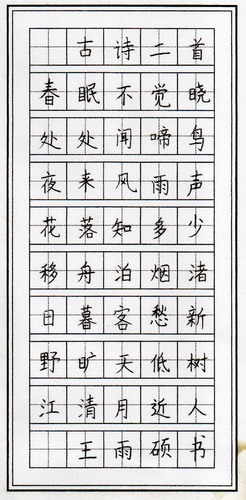 古诗二首
春眠不觉晓
处处闻啼鸟
夜来风雨声
花落知多少
移舟泊烟渚
日暮客愁新
野旷天低树
江清月近人
王雨硕书